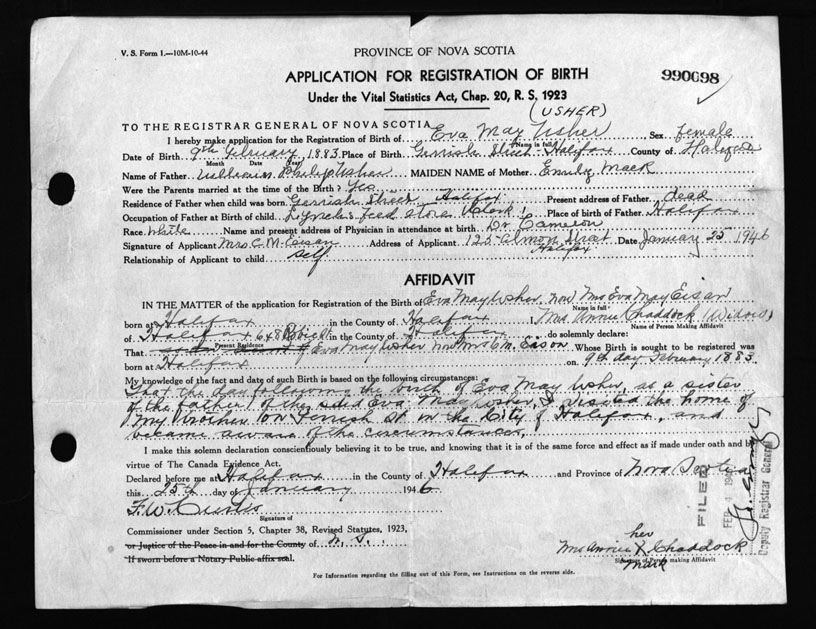 V. S. Form 1.—10M-10-44
PROVINCE OF NOVA SCOTIA
APPLICATION FOR REGISTRATION OF BIRTH
990698
Under the Vital Statistics Act, Chap. 20, R. S. 1923
(USHER)
TO THE REGISTRAR GENERAL OF NOVA SCOTIA
I hereby make application for the Registration of Birth of Eva May Usher Sex female
Name in full
Date of Birth 9th February 1883 Place of Birth Gerrish Street Halifax County of Halifax
Month Date Year
Name of Father William Philip Usher MAIDEN NAME of Mother Emily Mack
Were the Parents married at the time of the Birth? Yes
Residence of Father when child was born Gerrish Street Halifax Present address of Father dead
Occupation of Father at Birth of child Lynch's feed store (Clerk) Place of birth of Father Halifax
Race White Name and present address of Physician in attendance at birth Dr Cameron
Signature of Applicant Mrs C. M. Eisan Address of Applicant 125 Almon Street Date January 25 1946
Halifax
Relationship of Applicant to child self
AFFIDAVIT
IN THE MATTER of the application for Registration of the Birth of Eva May Usher, now Mrs Eva May Eisan
Name in full
born at Halifax in the County of Halifax I, Mrs Annie Chaddock (Widow)
Name of Person Making Affidavit
of Halifax 648 Robie St in the County of Halifax do solemnly declare:
Present Residence
That Eva May Usher now Mrs C. M. Eason Whose Birth is sought to be registered was
born at Halifax on 9th day February 1883.
My knowledge of the fact and date of such Birth is based on the following circumstances:
That the day following the birth of Eva May Usher, as a sister
of the father of the sided Eva May Usher, I visited the home of
my brother on Gerrish St in the City of Halifax, and
became aware of the circumstances.
I make this solemn declaration conscientiously believing it to be true, and knowing that it is of the same force and effect as if made under oath and by
virtue of The Canada Evidence Act.
Declared before me at Halifax in the County of Halifax and Province of Nova Scotia
this 25th day of January 1946
F. W. Curtis
Signature of
Commissioner under Section 5, Chapter 38, Revised Statutes, 1923,
or Justice of the Peace in and for the County of N. S.
If sworn before a Notary Public affix seal.
her
Mrs Annie X Chaddock
mark
Signature of Person making Affidavit
For Information regarding the filling out of this Form, see Instructions on the reverse side.
FILED
FEB 4 194
Deputy Registrar General